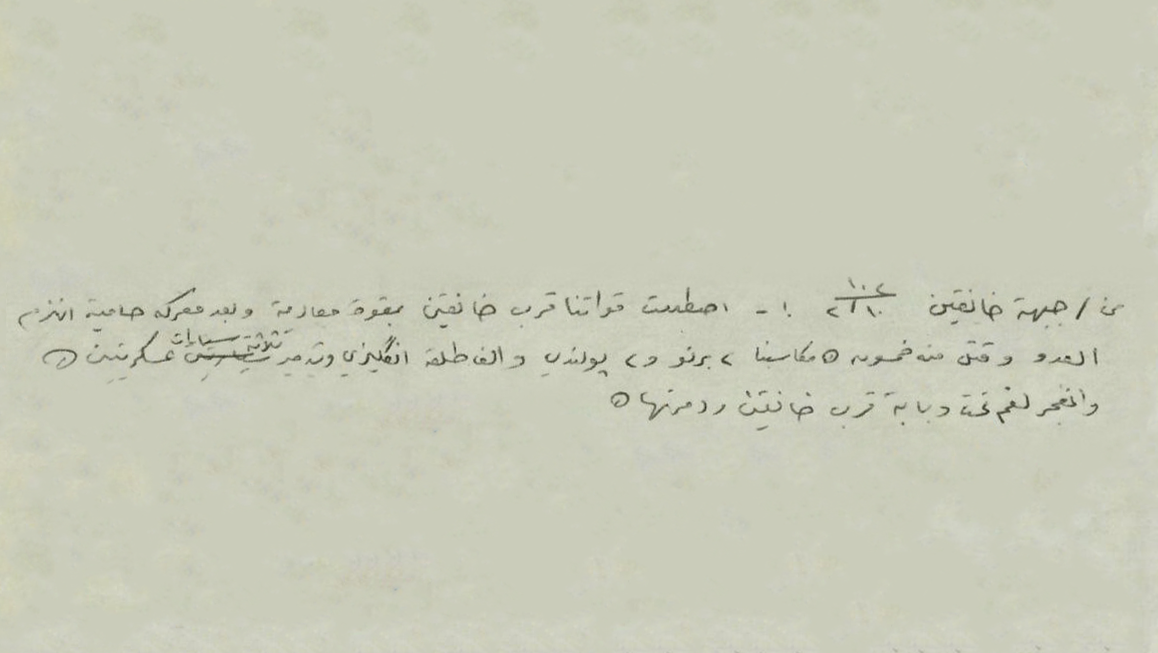 من / جبهة خانقين ١٠٢ ٢/١٠ ١ - اصطدمت قواتنا قرب خانقين بقوة معادية وبعد معركة حامية انهزم
العدو وقتل منه خمسون مكاسبنا ٢ برنو و٢ پولندي والف طلقة انگليزي وتدمير ثلاثة سيارات عسكريتين
وانفجر لغم تحت دبابة قرب خانقين ودمرتها